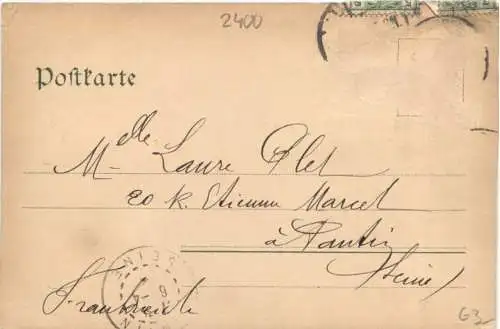 2400
Postkarte
Melle Laure Plet
20 R. Etienne Marcel
à Pantin
(Seine)
Frankreich
63